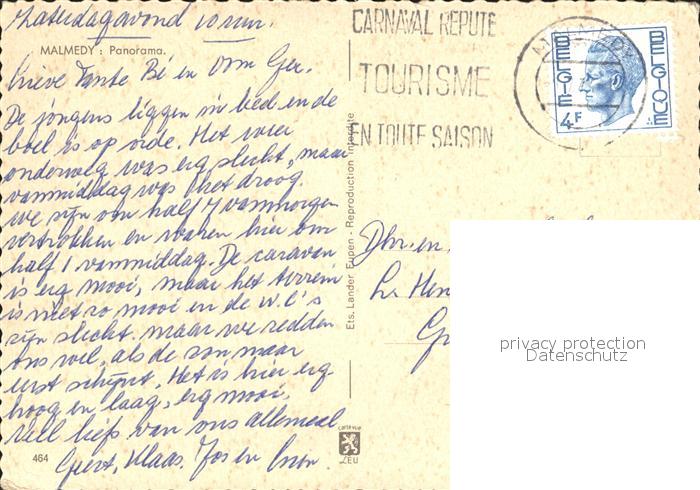 Zaterdagavond 10 uur.
MALMEDY : Panorama.
Lieve Tante Bé en Oom Ger.
De jongens liggen in bed en de
boel is op orde. Het weer
onderweg was erg slecht, maar
vanmiddag was het droog.
We zijn om half 7 vanmorgen
vertrokken en waren hier om
half 1 vanmiddag. De caravan
is erg mooi, maar het terrein
is niet zo mooi en de w.c's
zijn slecht. maar we redden
ons wel, als de zon maar
eerst schijnt. Het is hier erg
hoog en laag, erg mooi,
Veel liefs van ons allemaal
Geert, Klaas, Jos en
464
CARNAVAL REPUTE
TOURISME
EN TOUTE SAISON
BELGIE
BELGIQUE
4F
Ets. Lander Eupen - Reproduction interdite
cartevue
LEU
Dhr. en
privacy protection
Datenschutz